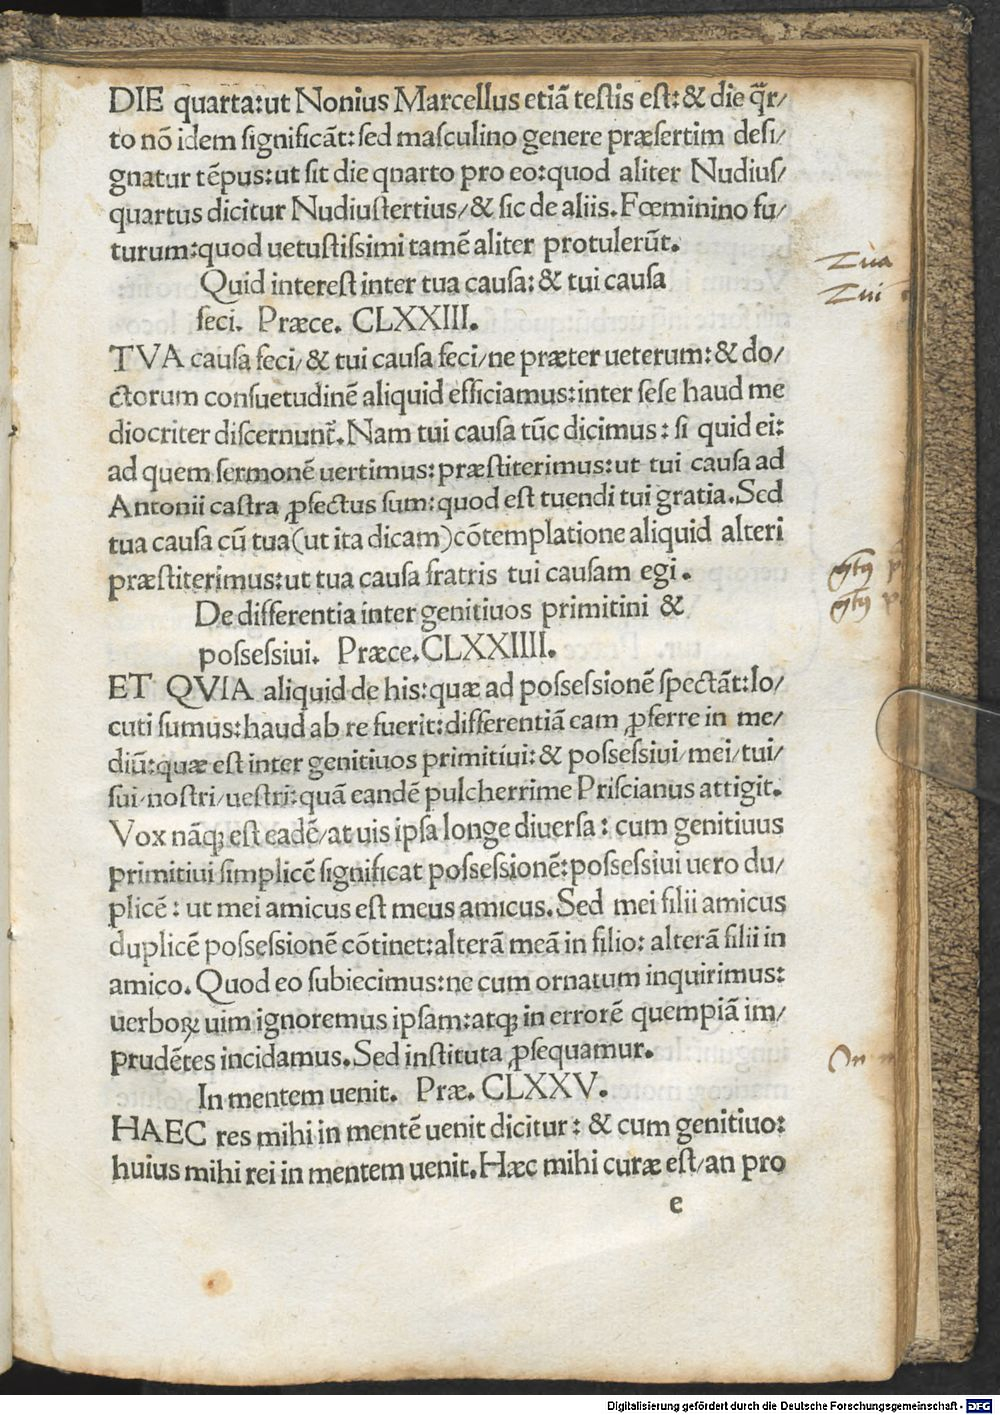 DIE quarta:ut Nonius Marcellus etiā testis est:& die q̄r/
to nō idem significāt:sed masculino genere præsertim desi/
gnatur tēpus:ut sit die qnarto pro eo:quod aliter Nudius/
quartus dicitur Nudiustertius/& sic de aliis.Fœminino fu/
turum:quod uetustissimi tamē aliter protulerūt.
Quid interest inter tua causa:& tui causa
feci. Præce. CLXXIII.
TVA causa feci/& tui causa feci/ne præter ueterum:& do/
ctorum consuetudinē aliquid efficiamus:inter sese haud me
diocriter discernunt̄.Nam tui causa tūc dicimus: si quid ei:
ad quem sermonē uertimus:præstiterimus:ut tui causa ad
Antonii castra ꝓfectus sum:quod est tuendi tui gratia.Sed
tua causa cū tua(ut ita dicam)cōtemplatione aliquid alteri
præstiterimus:ut tua causa fratris tui causam egi.
De differentia inter genitiuos primitini &
possessiui. Præce.CLXXIIII.
ET QVIA aliquid de his:quæ ad possessionē spectāt:lo/
cuti sumus:haud ab re fuerit:differentiā eam ꝓferre in me/
diū:quæ est inter genitiuos primitiui:& possessiui/mei/tui/
sui/nostri/uestri:quā eandē pulcherrime Priscianus attigit.
Vox nāqꝫ est eadē/at uis ipsa longe diuersa: cum genitiuus
primitiui simplicē significat possessionē:possessiui uero du/
plicē: ut mei amicus est meus amicus.Sed mei filii amicus
duplicē possessionē cōtinet:alterā meā in filio: alterā filii in
amico.Quod eo subiecimus:ne cum ornatum inquirimus:
uerboꝝ uim ignoremus ipsam:atqꝫ in errorē quempiā im/
prudētes incidamus.Sed instituta ꝓsequamur.
In mentem uenit. Præ. CLXXV.
HAEC res mihi in mentē uenit dicitur: & cum genitiuo:
huius mihi rei in mentem uenit.Hæc mihi curæ est/an pro
e
Tua
Tui
Digitalisierung gefördert durch die Deutsche Forschungsgemeinschaft - DFG